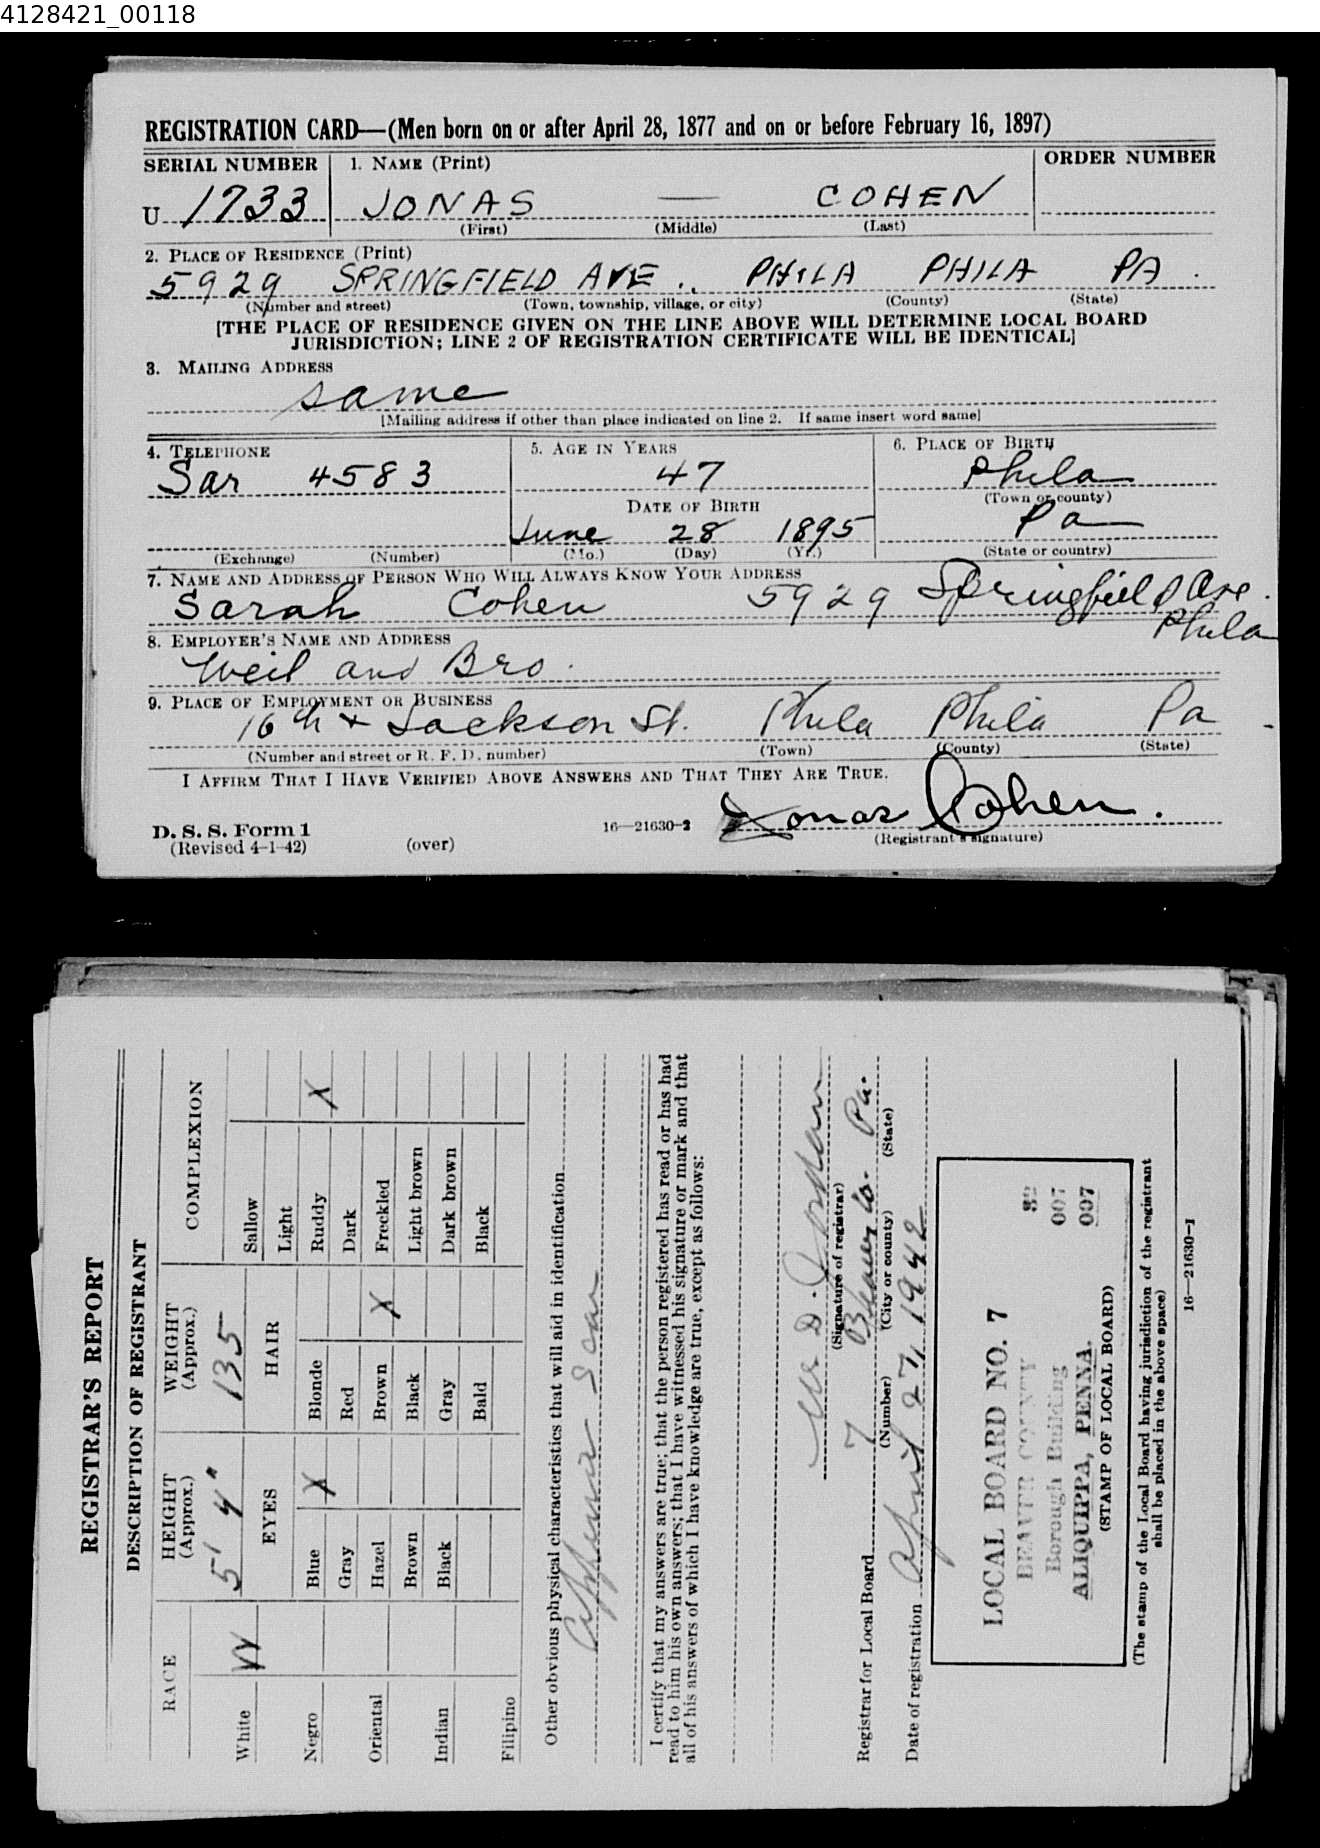 4128421_00118
REGISTRATION CARD—(Men born on or after April 28, 1877 and on or before February 16, 1897)
SERIAL NUMBER 1. NAME (Print) ORDER NUMBER
U 1733 JONAS — COHEN
(First) (Middle) (Last)
2. PLACE OF RESIDENCE (Print)
5929 SPRINGFIELD AVE.. PHILA PHILA PA.
(Number and street) (Town, township, village, or city) (County) (State)
[THE PLACE OF RESIDENCE GIVEN ON THE LINE ABOVE WILL DETERMINE LOCAL BOARD
JURISDICTION; LINE 2 OF REGISTRATION CERTIFICATE WILL BE IDENTICAL]
3. MAILING ADDRESS
same
[Mailing address if other than place indicated on line 2. If same insert word same]
4. TELEPHONE 5. AGE IN YEARS 6. PLACE OF BIRTH
Sar 4583 47 Phila
(Town or county)
DATE OF BIRTH Pa
June 28 1895
(Exchange) (Number) (Mo.) (Day) (Yr.) (State or country)
7. NAME AND ADDRESS OF PERSON WHO WILL ALWAYS KNOW YOUR ADDRESS
Sarah Cohen 5929 Springfield Ave.
Phila
8. EMPLOYER'S NAME AND ADDRESS
Weil and Bro.
9. PLACE OF EMPLOYMENT OR BUSINESS
16th + Jackson St. Phila Phila Pa
(Number and street or R. F. D. number) (Town) (County) (State)
I AFFIRM THAT I HAVE VERIFIED ABOVE ANSWERS AND THAT THEY ARE TRUE.
Jonas Cohen.
D. S. S. Form 1 16—21630-2 (Registrant's signature)
(Revised 4-1-42) (over)
REGISTRAR'S REPORT
DESCRIPTION OF REGISTRANT
RACE HEIGHT (Approx.) WEIGHT (Approx.) COMPLEXION
5' 4" 135
White EYES HAIR Sallow
Light
Negro Blue X Blonde Ruddy X
Gray Red Dark
Oriental Hazel Brown X Freckled
Brown Black Light brown
Indian Black Gray Dark brown
Bald Black
Filipino
Other obvious physical characteristics that will aid in identification
Appendix Scar
I certify that my answers are true; that the person registered has read or has had
read to him his own answers; that I have witnessed his signature or mark and that
all of his answers of which I have knowledge are true, except as follows:
D. Jordan
(Signature of registrar)
Registrar for Local Board 7 Beaver Co. Pa.
(Number) (City or county) (State)
Date of registration April 27, 1942
LOCAL BOARD NO. 7 32
BEAVER COUNTY 007
Borough Building 007
ALIQUIPPA, PENNA.
(STAMP OF LOCAL BOARD)
(The stamp of the Local Board having jurisdiction of the registrant
shall be placed in the above space)
16—21630-1